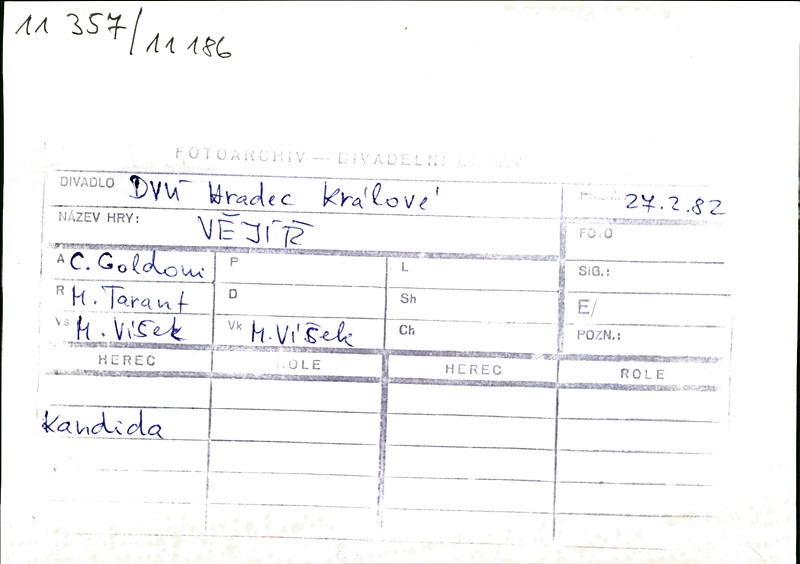 11 357/11 186
FOTOARCHIV — DIVADELNÍ ÚSTAV
DIVADLO DVÚ Hradec Králové
27.2.82
NÁZEV HRY: VĚJÍŘ
FOTO
A C. Goldoni P L SIG.:
R M. Tarant D Sh E/
Vs M. Víšek Vk M. Víšek Ch POZN.:
HEREC ROLE HEREC ROLE
Kandida